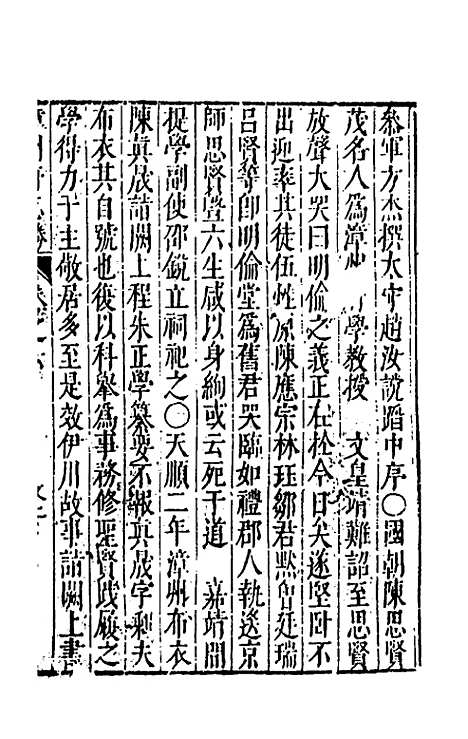 叅軍方杰撰太守趙汝讜䠶中序〇國朝陳思賢
茂名人爲漳州 學教授 文皇靖難詔至思賢
放聲大哭曰明倫之義正在於今日矣遂堅卧不
出迎率其徒伍性原陳應宗林珏鄒君默曾廷瑞
呂賢等卽明倫堂爲舊君哭臨如禮郡人執送京
師思賢曁六生咸以身殉或云死于道 嘉靖間
提學副使邵銳立祠祀之〇天順二年漳州布衣
陳真晟詣闕上程朱正學纂要不報真晟字剩夫
布衣其自號也後以科舉爲事務修聖賢踐履之
學得力于主敬居多至是效伊川故事詣闕上書